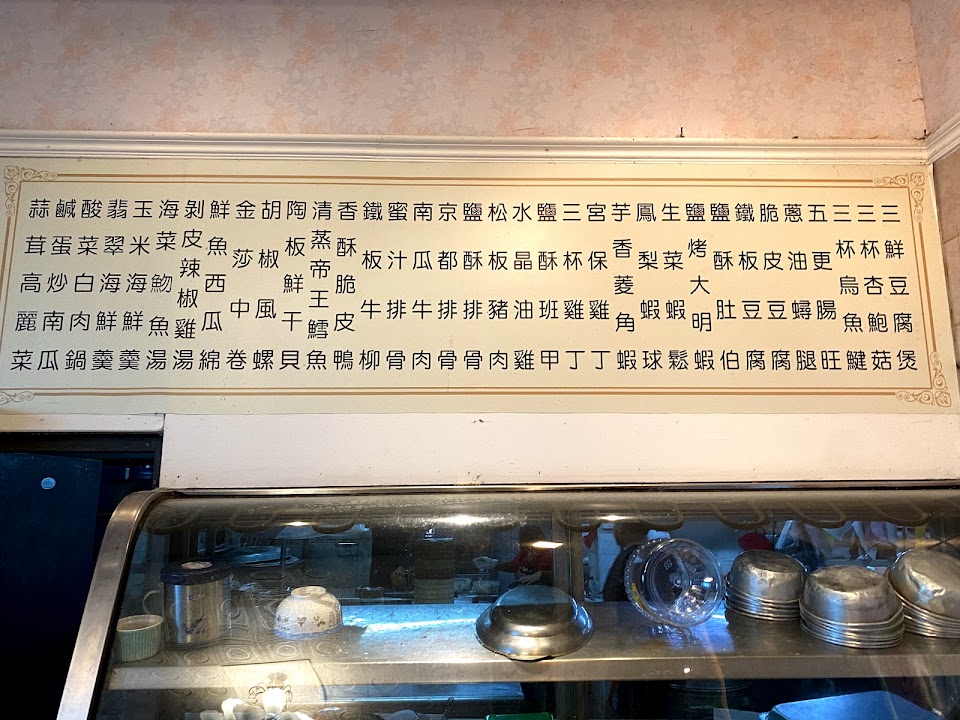 三鮮豆腐煲
三杯杏鮑菇
三杯烏魚鍵
五更腸旺
蔥油蟳腿
脆皮豆腐
鐵板豆腐
鹽酥肚伯
鹽烤大明蝦
生菜蝦鬆
鳳梨蝦球
芋香菱角蝦
宮保雞丁
三杯雞丁
鹽酥班甲
水晶油雞
松板豬肉
鹽酥排骨
京都排骨
南瓜牛肉
蜜汁排骨
鐵板牛柳
香酥脆皮鴨
清蒸帝王鱈魚
陶板鮮干貝
胡椒風螺
金莎中卷
鮮魚西瓜綿
剝皮辣椒雞湯
海菜魩魚湯
玉米海鮮羹
翡翠海鮮羹
酸菜白肉鍋
鹹蛋炒南瓜
蒜茸高麗菜